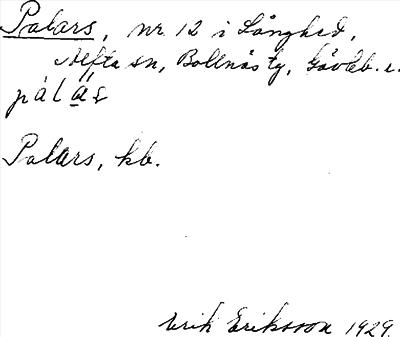 Palars, nr 12 i Långhed,
Alfta sn, Bollnäs tg, Gävleb. l.
pálás
Palars, kb.
Erik Eriksson 1929.